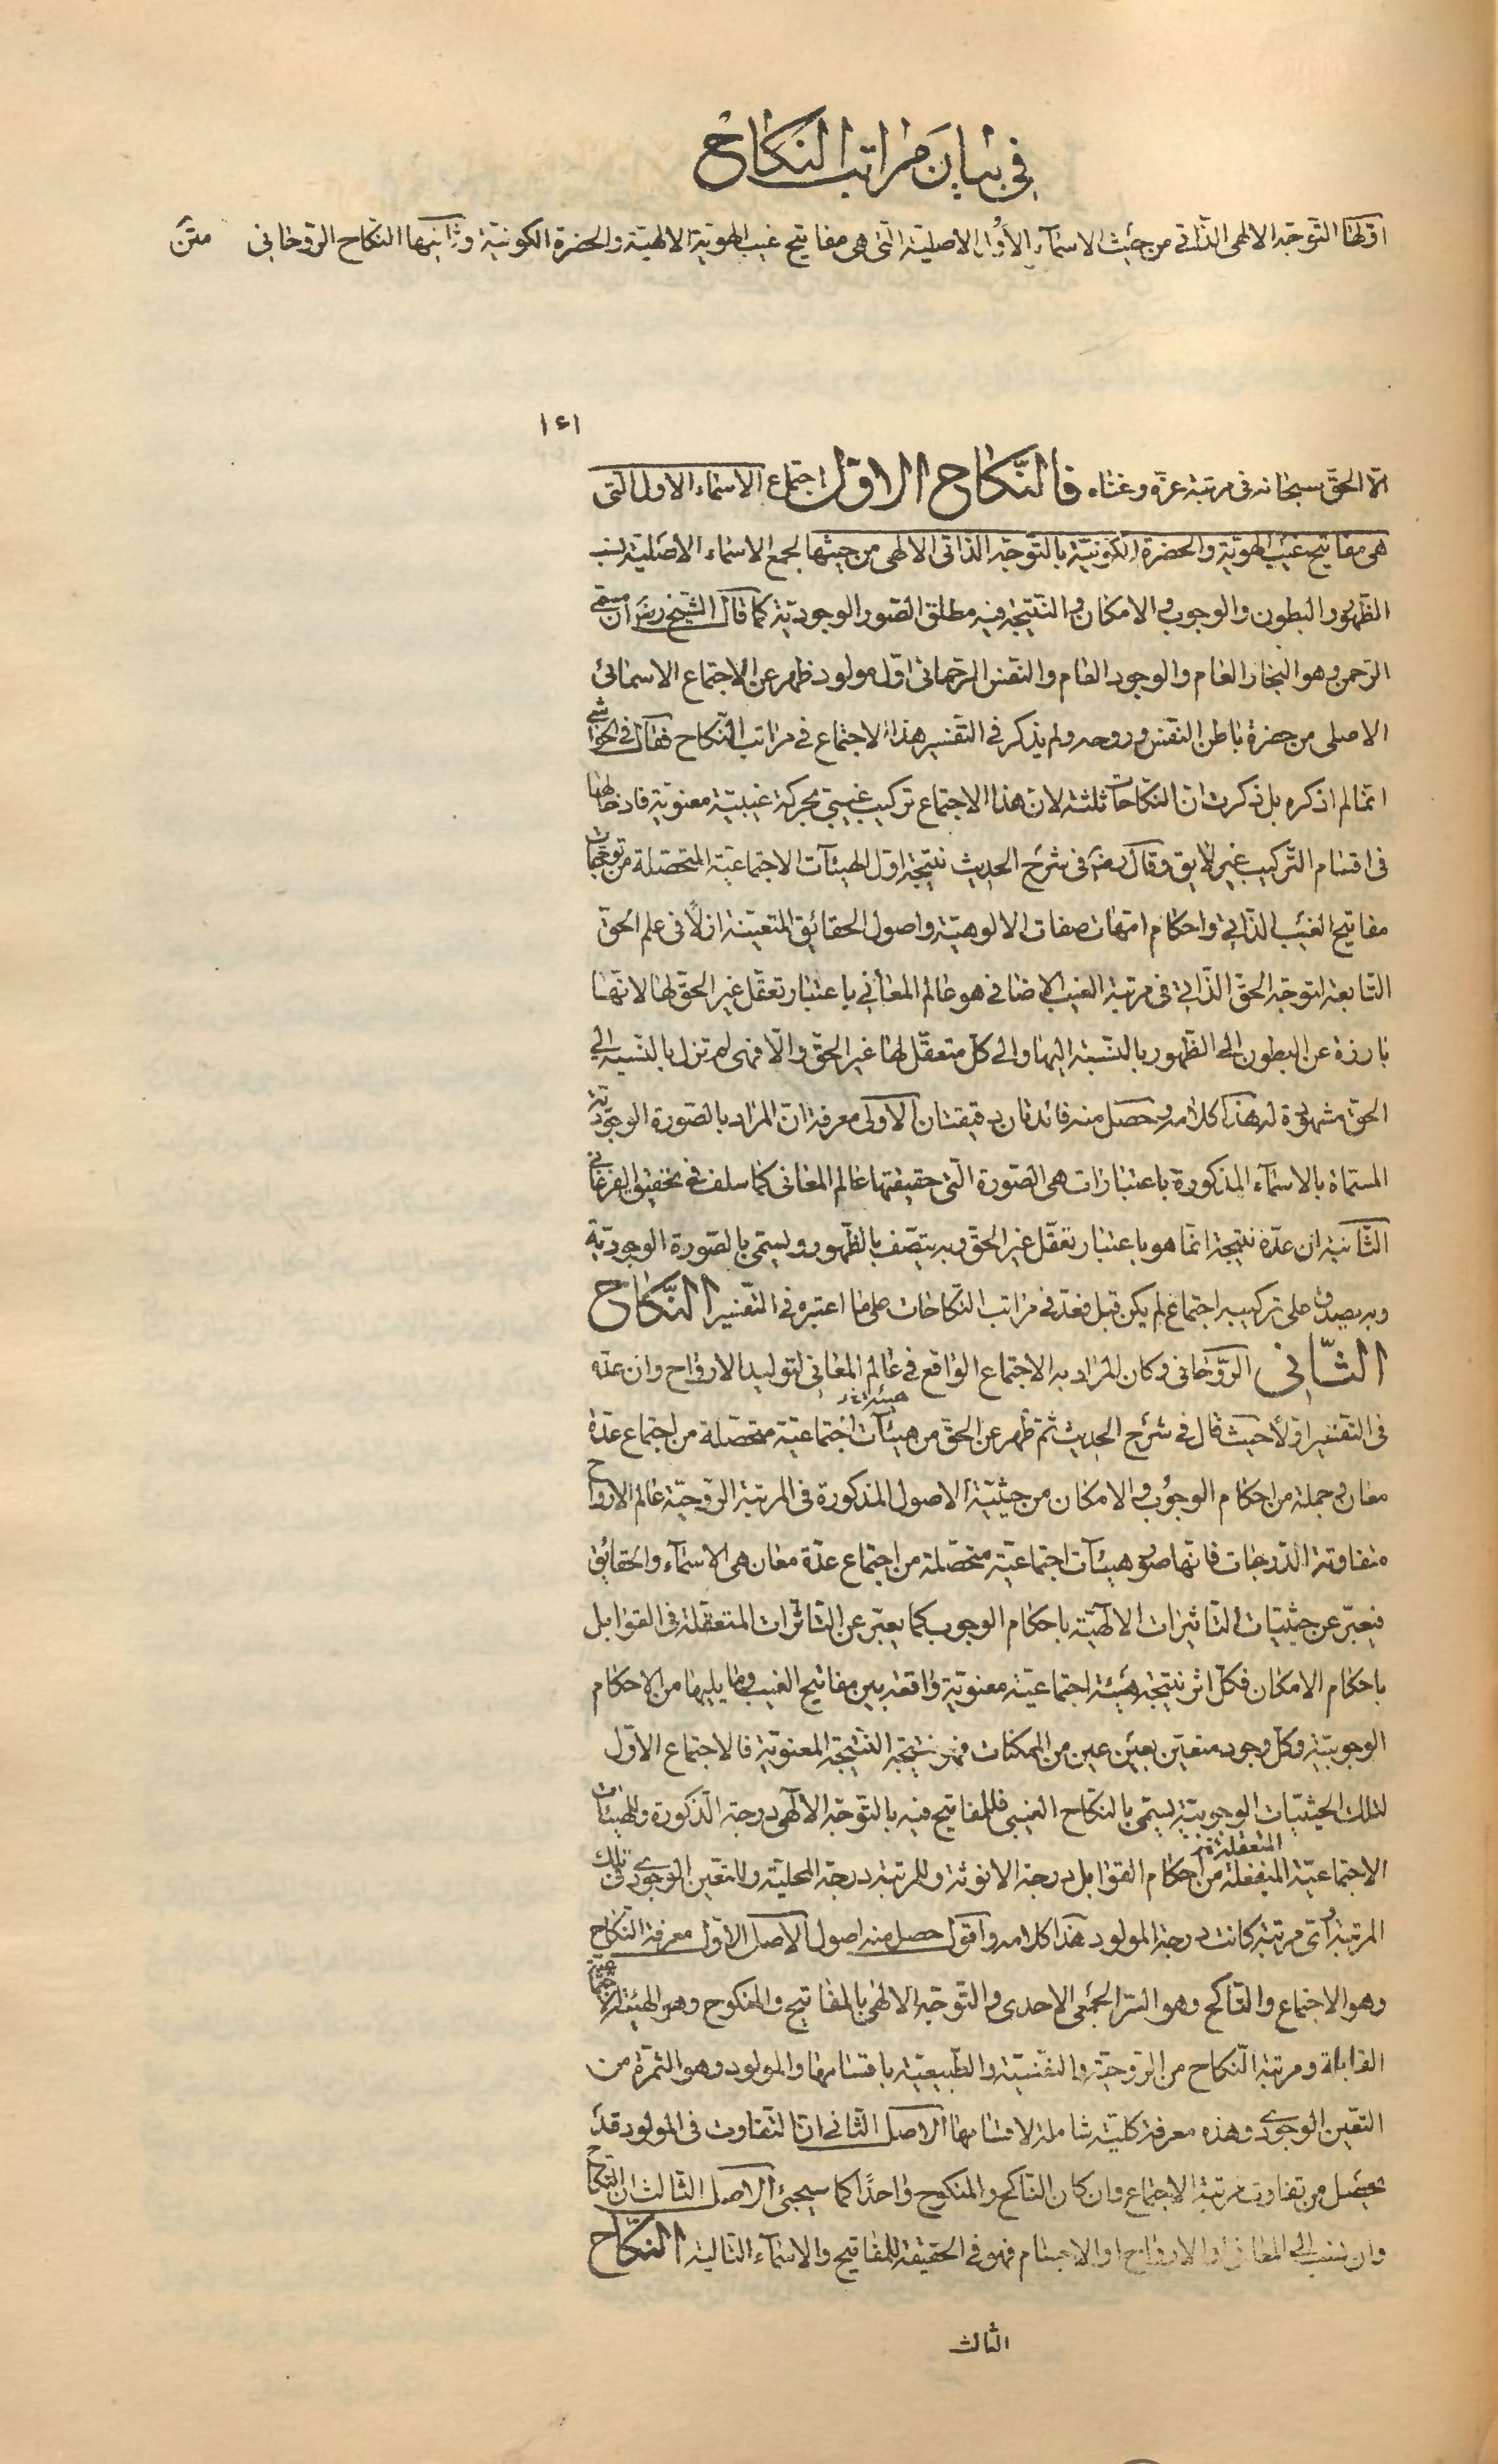 في بيان مراتب النكاح
اولها التوجه الالهى الذاتى من حيث الاسمآء الأوُل الاصليّة التى هى مفاتيح غيب الهويّة الالهيّة والحضرة الكونيّة وثانيها النكاح الروحانى متن
١٤١
الا الحقّ سبحانه فى مرتبة عزّه وغناه فالنّكاح الاوّل اجتماع الاسماء الاول التى
هى مفاتيح غيب الهويّة والحضرة الكونيّة بالتّوجّه الذاتى الالهى من حيثها لجمع الاسماء الاصليّة بنسب
الظّهور والبطون والوجوب والامكان والنّتيجة فيه مطلق الصّور الوجوديّة كما قال الشّيخ رض ان مسمّى
الرّحمن وهو البخار العام والوجود العام والنّفس الرّحمانى اوّل مولود ظهر عن الاجتماع الاسمائى
الاصلى من حضرة باطن النفس وروحه ولم يذكر فى التّفسير هذا الاجتماع فى مراتب النّكاح فقال فى الحواشى
انّما لم اذكره بل ذكرت انّ النّكاحات ثلثة لانّ هذا الاجتماع تركيب غيبىّ بحركة غيبيّة معنويّة فادخالها
فى اقسام التّركيب غير لايق وقال رض فى شرح الحديث نتيجة اوّل الهيئآت الاجتماعيّة المتحصّلة من توجّهات
مفاتيح الغيب الذّاتى واحكام امّهات صفات الالوهيّة واصول الحقائق المتعيّنة ازلًا فى علم الحقّ
التّابعة لتوجّه الحقّ الذّاتى فى مرتبة الغيب الاضافى هو عالم المعانى باعتبار تعقّل غير الحقّ لها لانّها
بارزة عن البطون الى الظّهور بالنّسبة اليها والى كلّ متعقّل لها غير الحقّ والّا فهى لم تزل بالنّسبة الى
الحقّ مشهودة له هذا كلامه وحصل منه فائدتان دقيقتان الاولى معرفة انّ المراد بالصّورة الوجوديّة
المسمّاة بالاسمآء المذكورة باعتبارات هى الصّورة الّتى حقيقتها عالم المعانى كما سلف فى تحقيق الفرغانى
الثّانية ان عدّه نتيجة انّما هو باعتبار تعقّل غير الحقّ وبه يتّصف بالظّهور ويسمّى بالصّورة الوجوديّة
وبه يصدق على تركيبه اجتماع لم يكن قبل فعدّ فى مراتب النّكاحات على ما اعتبره فى التّفسير النّكاح
الثّانى الرّوحانى وكان المراد به الاجتماع الواقع فى عالم المعانى لتوليد الارواح وان عدّه
فى التّفسير اوّلًا حيث قال فى شرح الحديث ثمّ ظهر عن الحقّ من هيئآت اجتماعيّة متحصّلة من اجتماع عدّة
معان وجملة من احكام الوجوب والامكان من حيثيّة الاصول المذكورة فى المرتبة الرّوحيّة عالم الارواح
متفاوتة الدّرجات فانّها صور هيئآت اجتماعيّة متحصّلة من اجتماع عدّة معان هى الاسمآء والحقايق
فيعبّر عن حيثيّات التّاثيرات الالٓهيّة باحكام الوجوب كما يعبّر عن التّاثّرات المتعقّلة فى القوابل
باحكام الامكان فكلّ اثر نتيجة هيئة اجتماعيّة معنويّة واقعة بين مفاتيح الغيب وما يليها من الاحكام
الوجوبيّة وكلّ وجود متعيّن بعين عين من الممكنات فهو نتيجة النّتيجة المعنويّة فالاجتماع الاوّل
لتلك الحيثيّات الوجوبيّة يسمّى بالنكاح الغيبى فللمفاتيح فيه بالتّوجّه الالٓهى درجة الذّكورة وللهيئات
الاجتماعيّة المنفعلة من احكام القوابل درجة الانوثة وللمرتبة درجة المحليّة وللتعيّن الوجودى فى تلك
المتعقلة
المرتبة اىّ مرتبة كانت درجة المولود هذا كلامه واقول حصل منه اصول الاصل الاوّل معرفة النّكاح
وهو الاجتماع والنّاكح وهو السّر الجمعى الاحدى والتّوجّه الالهى بالمفاتيح والمنكوح وهو الهيئة الاجتماعيّة
القابلة ومرتبة النّكاح من الرّوحيّة والنفسيّة والطّبيعيّة باقسامها والمولود وهو الثمرة من
التعيّن الوجودى وهذه معرفة كليّة شاملة لاقسامها الاصل الثّانى انّ التفاوت فى المولود قد
يحصل من تفاوت مرتبة الاجتماع وان كان النّاكح والمنكوح واحدًا كما سيجئ الاصل الثّالث ان النّكاح
وان نسب الى المعانى او الارواح او الاجسام فهو فى الحقيقة للمفاتيح والاسمآء التّالية النكاح
الثالث